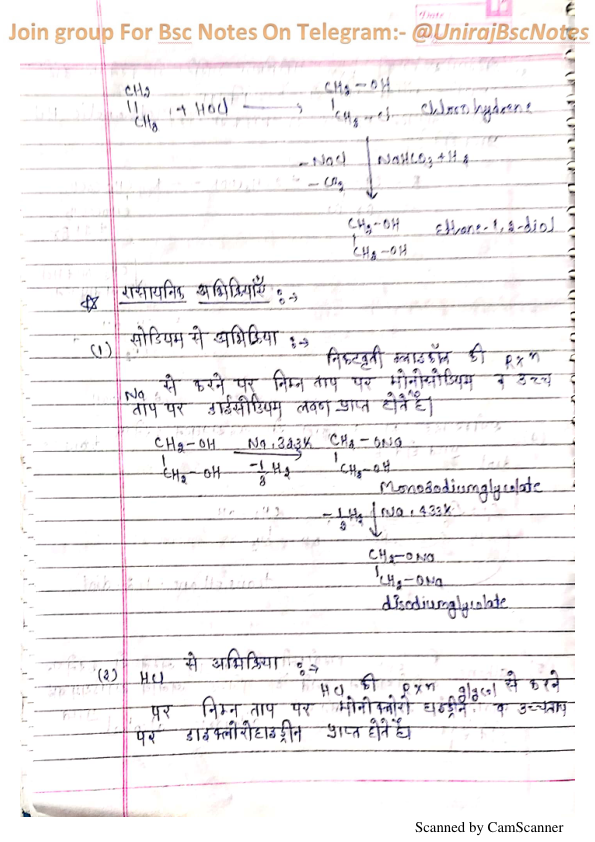 Join group For Bsc Notes On Telegram:- @UnirajBscNotes
CH2 CH2-OH
|| + HOCl → |
CH2 CH2-Cl Chlorohydrene
-NaCl | NaHCO3+H2
-CO2 ↓
CH2-OH Ethane-1,2-diol
|
CH2-OH
रासायनिक अभिक्रियाएँ :->
(1) सोडियम से अभिक्रिया :->
निकटवृती ग्लाइकॉल की Rxn
Na से करने पर निम्न ताप पर मोनोसोडियम व उच्च
ताप पर डाईसोडियम लवण प्राप्त होते है।
CH2-OH Na, 323K CH2-ONa
| → |
CH2-OH -1/2 H2 CH2-OH
Monosodiumglycolate
-1/2 H2 ↓ Na, 433K
CH2-ONa
|
CH2-ONa
disodiumglycolate
(2) HCl से अभिक्रिया :->
HCl की Rxn glycol से करने
पर निम्न ताप पर मोनोक्लोरो हाइड्रीन व उच्चताप
पर डाइक्लोरोहाइड्रीन प्राप्त होते है।
Scanned by CamScanner